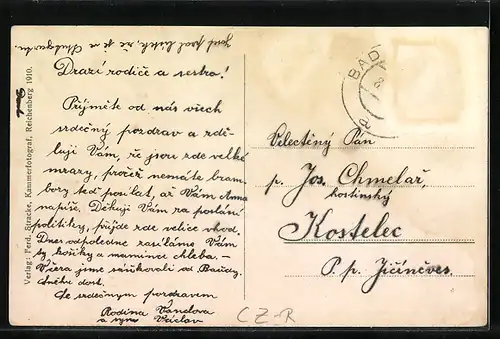 Drazí rodiče a sestro!
Přijměte od nás všech
srdečný pozdrav a sdě-
luji Vám, že jsou zde velké
mrazy, pročež nemáte bram-
bory teď posílat, až Vám Anna
napíše. Děkuji Vám za poslání
politiky, přijde zde velice vhod.
Dnes odpoledne zasíláme Vám
ty housky a mamince chleba.-
Včera jsme sáňkovali od Baudy.
sněhu dost.
Se srdečným pozdravem
Rodina Vaňdova
a syn Václav
Verlag: Ferd. Stracke, Kammerfotograf, Reichenberg 1910.
BAD
Velectěný Pán
p. Jos. Chmelař,
hostinský
Kostelec
P. p. Jičíněves.
CZ-R